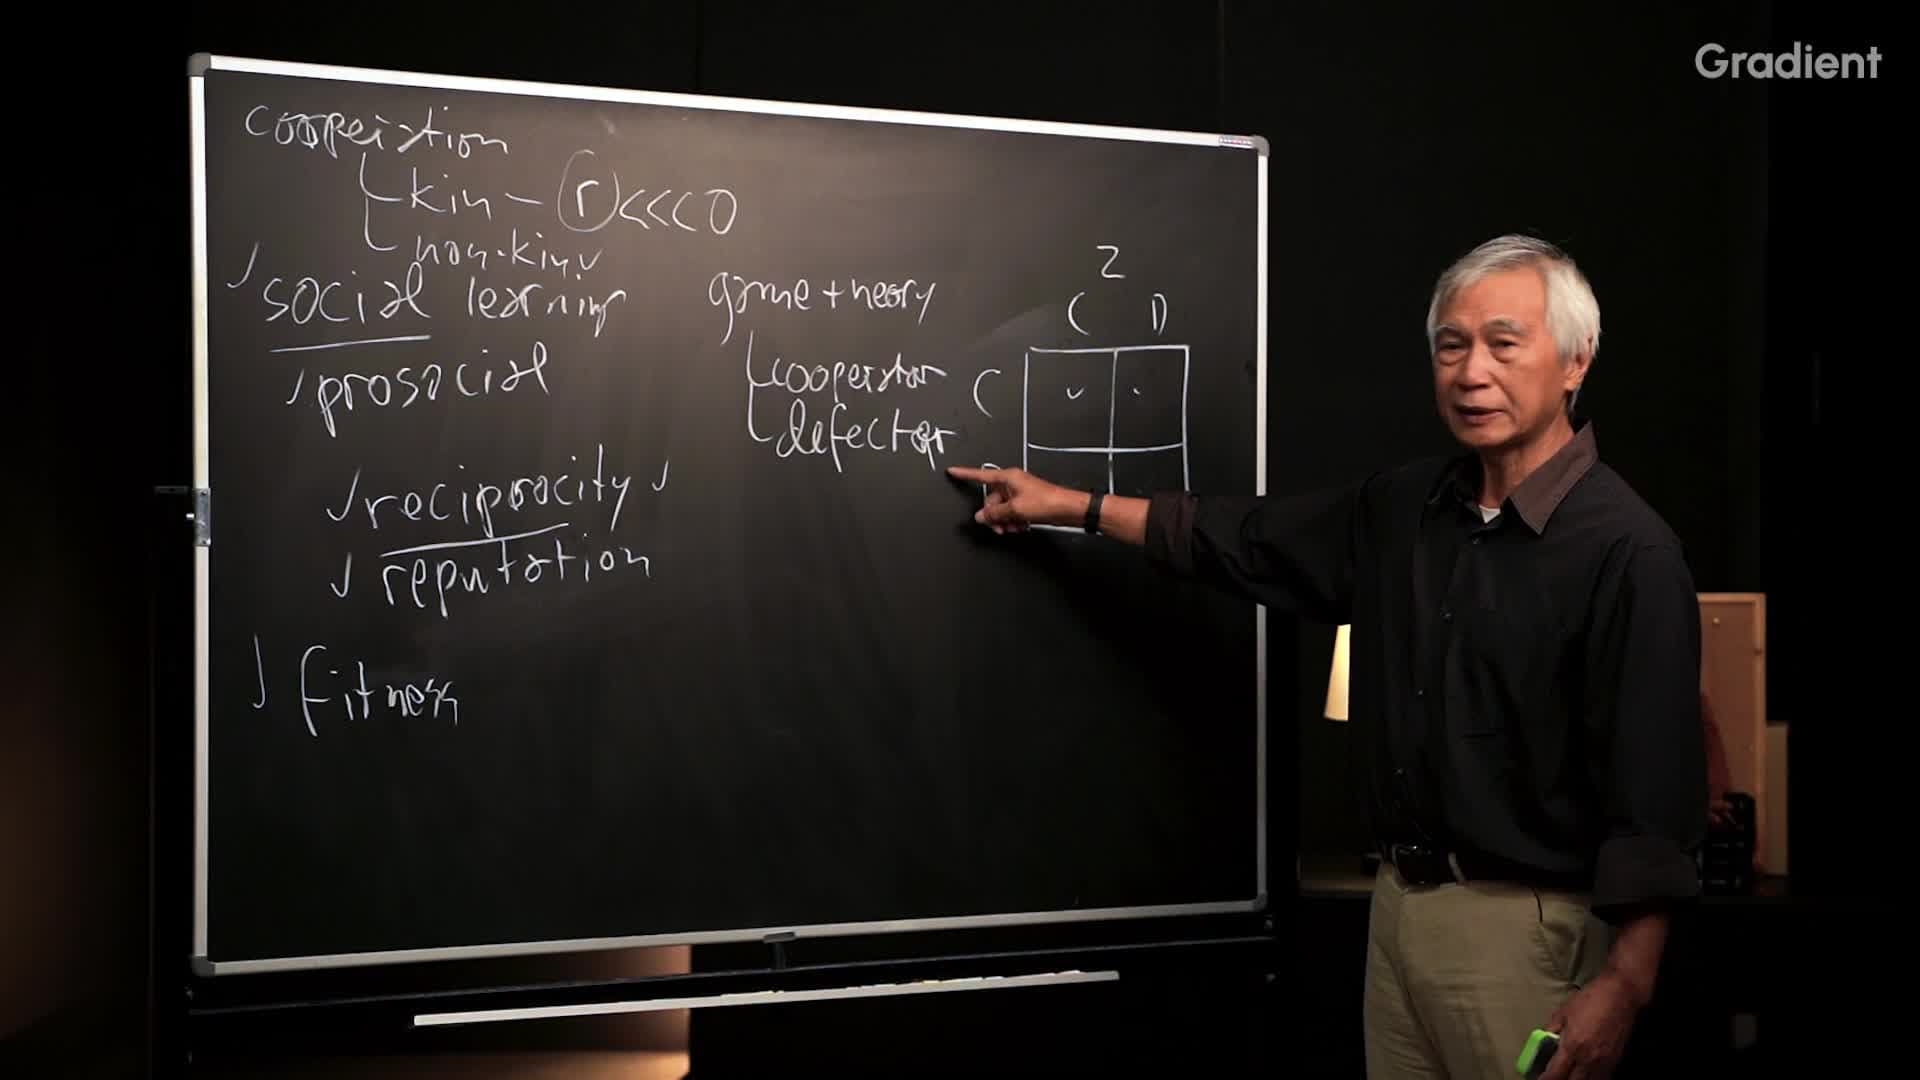 Gradient
cooperation
kin - r <<< 0
non-kin ✓
✓ social learning
✓ prosocial
✓ reciprocity ✓
✓ reputation
✓ fitness
game theory
cooperator
defector
2
C D
C
D